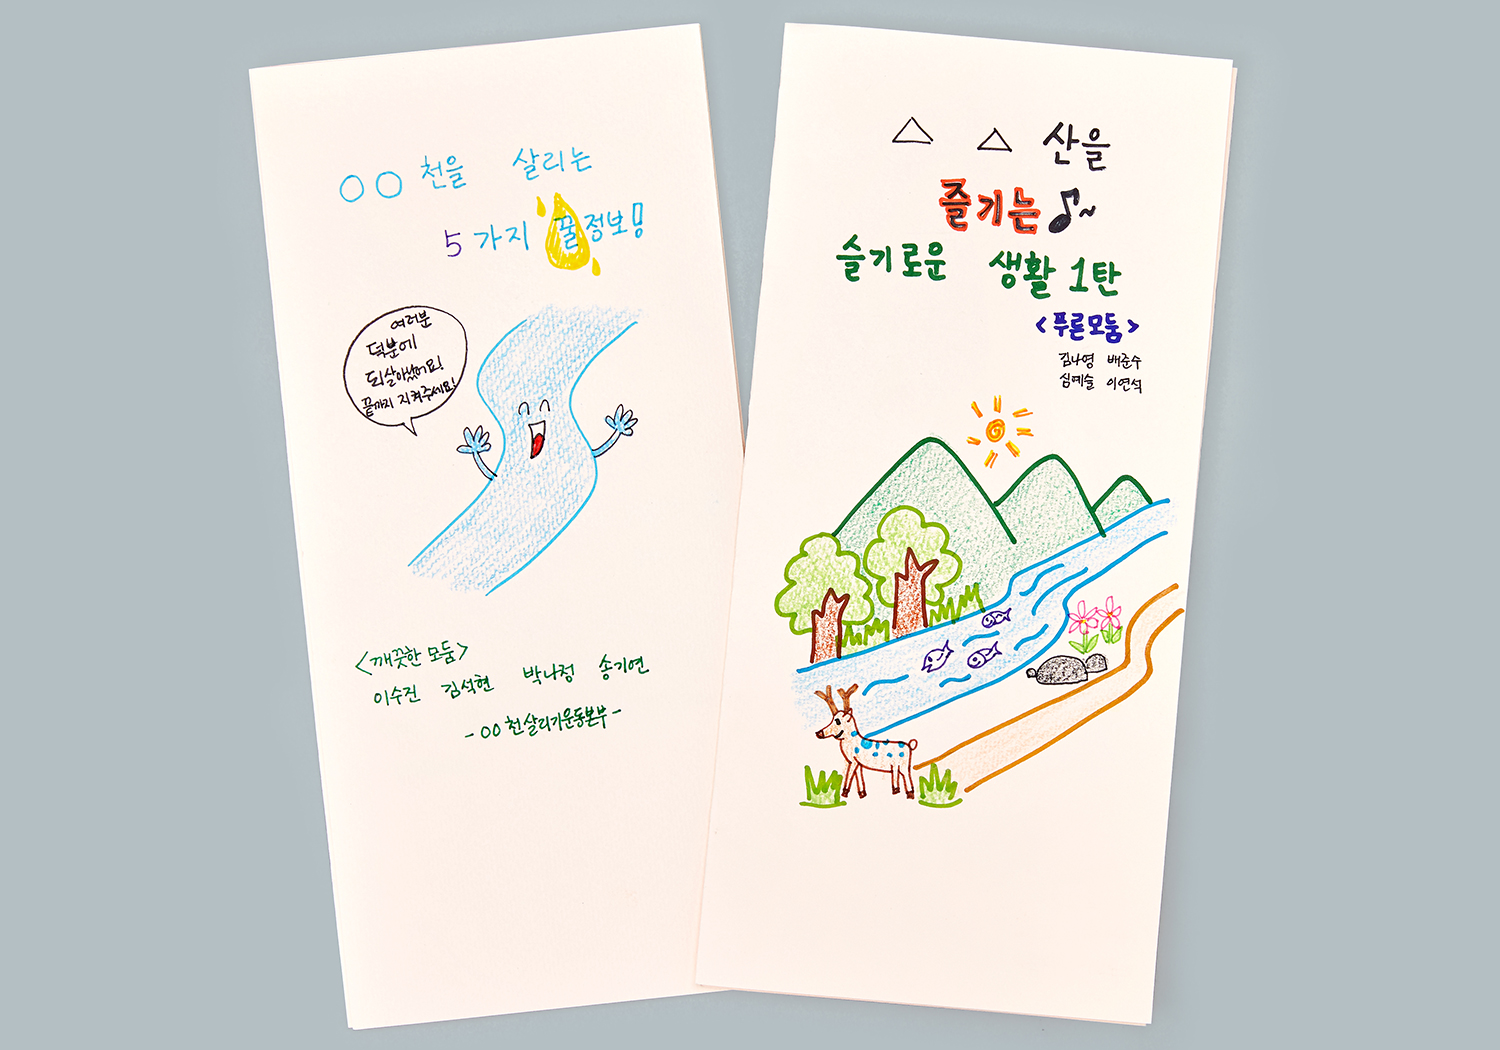 ○○ 천을 살리는
5가지 꿀정보!
여러분
덕분에
되살아났어요!
끝까지 지켜주세요!
<깨끗한 모둠>
이수진 김석현 박나정 송기연
- ○○천살리기운동본부 -
△ △ 산을
즐기는♪~
슬기로운 생활 1탄
<푸른모둠>
김나영 배준수
심예슬 이연석